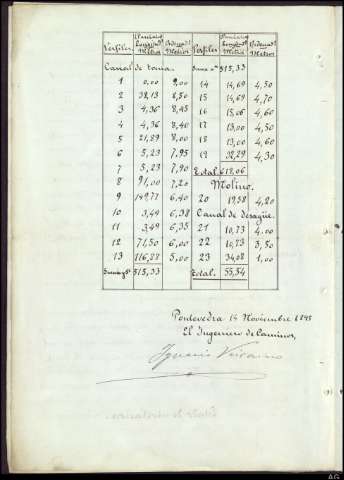 Perfiles Parciales Longitud.s Metros Ordenad.s Metros Perfiles Parciales Longitud.s Metros Ordenad.s Metros
Canal de toma. Suma a.r 515,33
1 0,00 9,00 14 14,69 4,50
2 38,13 8,50 15 14,69 4,70
3 4,36 8,45 16 15,06 4,60
4 4,36 8,40 17 13,00 4,50
5 21,89 8,00 18 13,00 4,60
6 5,23 7,95 19 32,29 4,30
7 5,23 7,90 Total. 618,06
8 91,00 7,20 Molino.
9 149,77 6,40 20 19,58 4,20
10 3,49 6,38 Canal de desagüe.
11 3,49 6,35 21 10,73 4,00
12 71,50 6,00 22 10,73 3,50
13 116,88 5,00 23 34,08 1,00
515,33 Total. 55,54
Pontevedra 14 Noviembre 1895
El Ingeniero de Caminos,
Ignacio
AG